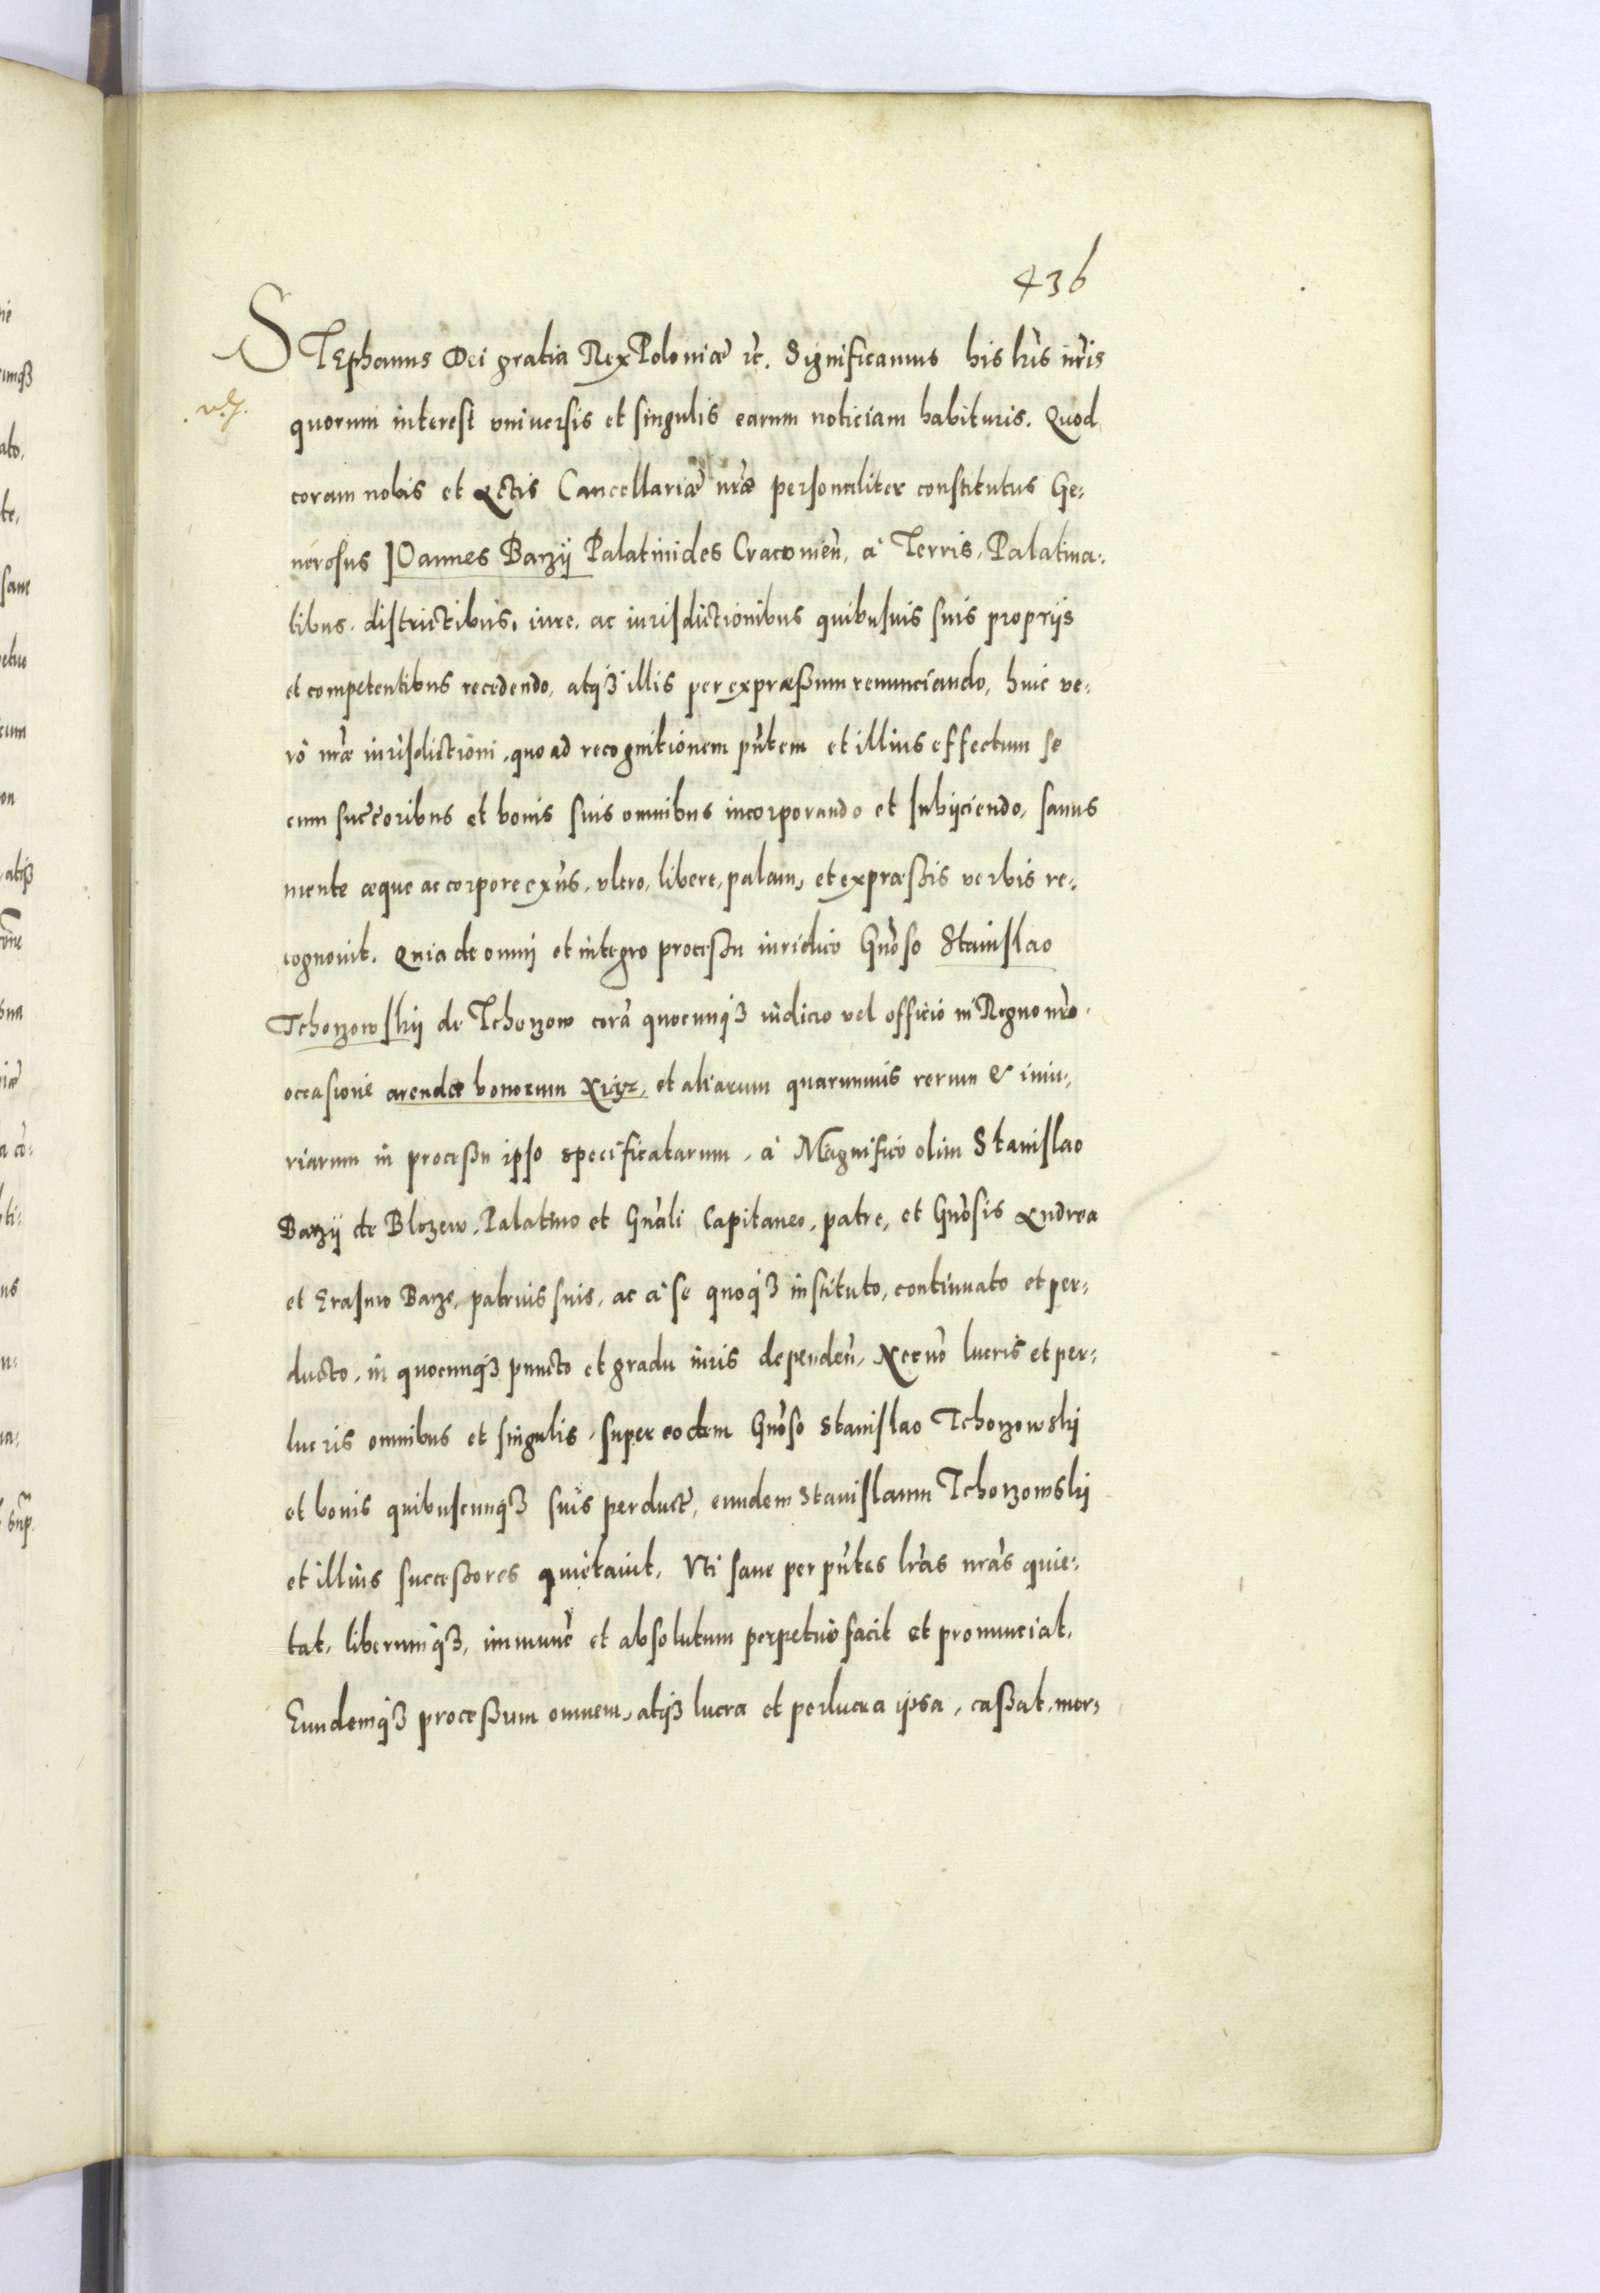 436
STEphanus Dei gratia Rex Poloniæ etc. Significamus his lr̃is nr̃is
quorum interest vniuersis et singulis earum noticiam habituris. Quod
coram nobis et Actis Cancellariæ nr̃æ personaliter constitutus Ge:
nerosus IOannes Barzÿ Palatinides Cracouień, à Terris, Palatina:
tibus, districtibus, iure, ac iurisdictionibus quibusuis suis proprijs
et competentibus recedendo, atqꝫ illis per expræßum renunciando, huic ve:
rò nr̃æ iurisdictioni, quo ad recognitionem pñtem et illius effectum se
cum succ̃oribus et bonis suis omnibus incorporando et subijciendo, sanus
mente æque ac corpore exñs, vltro, libere, palam, et expræßis verbis re:
cognouit. Quia de omni et integro proceßu iuridico Gñoso Stanislao
Tchorzowskij de Tchorzow corã quocunqꝫ iudicio vel officio in Regno nr̃o,
occasione arendæ bonorum et aliarum quarumuis rerum & iniu:
riarum in proceßu ipso specificatarum, à Magnifico olim Stanislao
Barzÿ de Blozew, Palatino et Gñali Capitaneo, patre, et Gñosis Andrea
et Erasmo Barze, patruis suis, ac à se quoqꝫ instituto, continuato et per:
ducto, in quocunqꝫ puncto et gradu iuris dependeñ, Necnõ lucris et per:
lucris omnibus et singulis, super eodem Gñoso Stanislao Tchorzowskj
et bonis quibuscunqꝫ suis perduct̃, eundem Stanislaum Tchorzowskj
et illius succeßores quietauit. Vti sane per pñtes lr̃as nr̃as quie:
tat, liberumqꝫ, immunẽ et absolutum perpetuò facit et pronunciat.
Eundemqꝫ proceßum omnem, atqꝫ lucra et perlucra ipsa, caßat, mor: